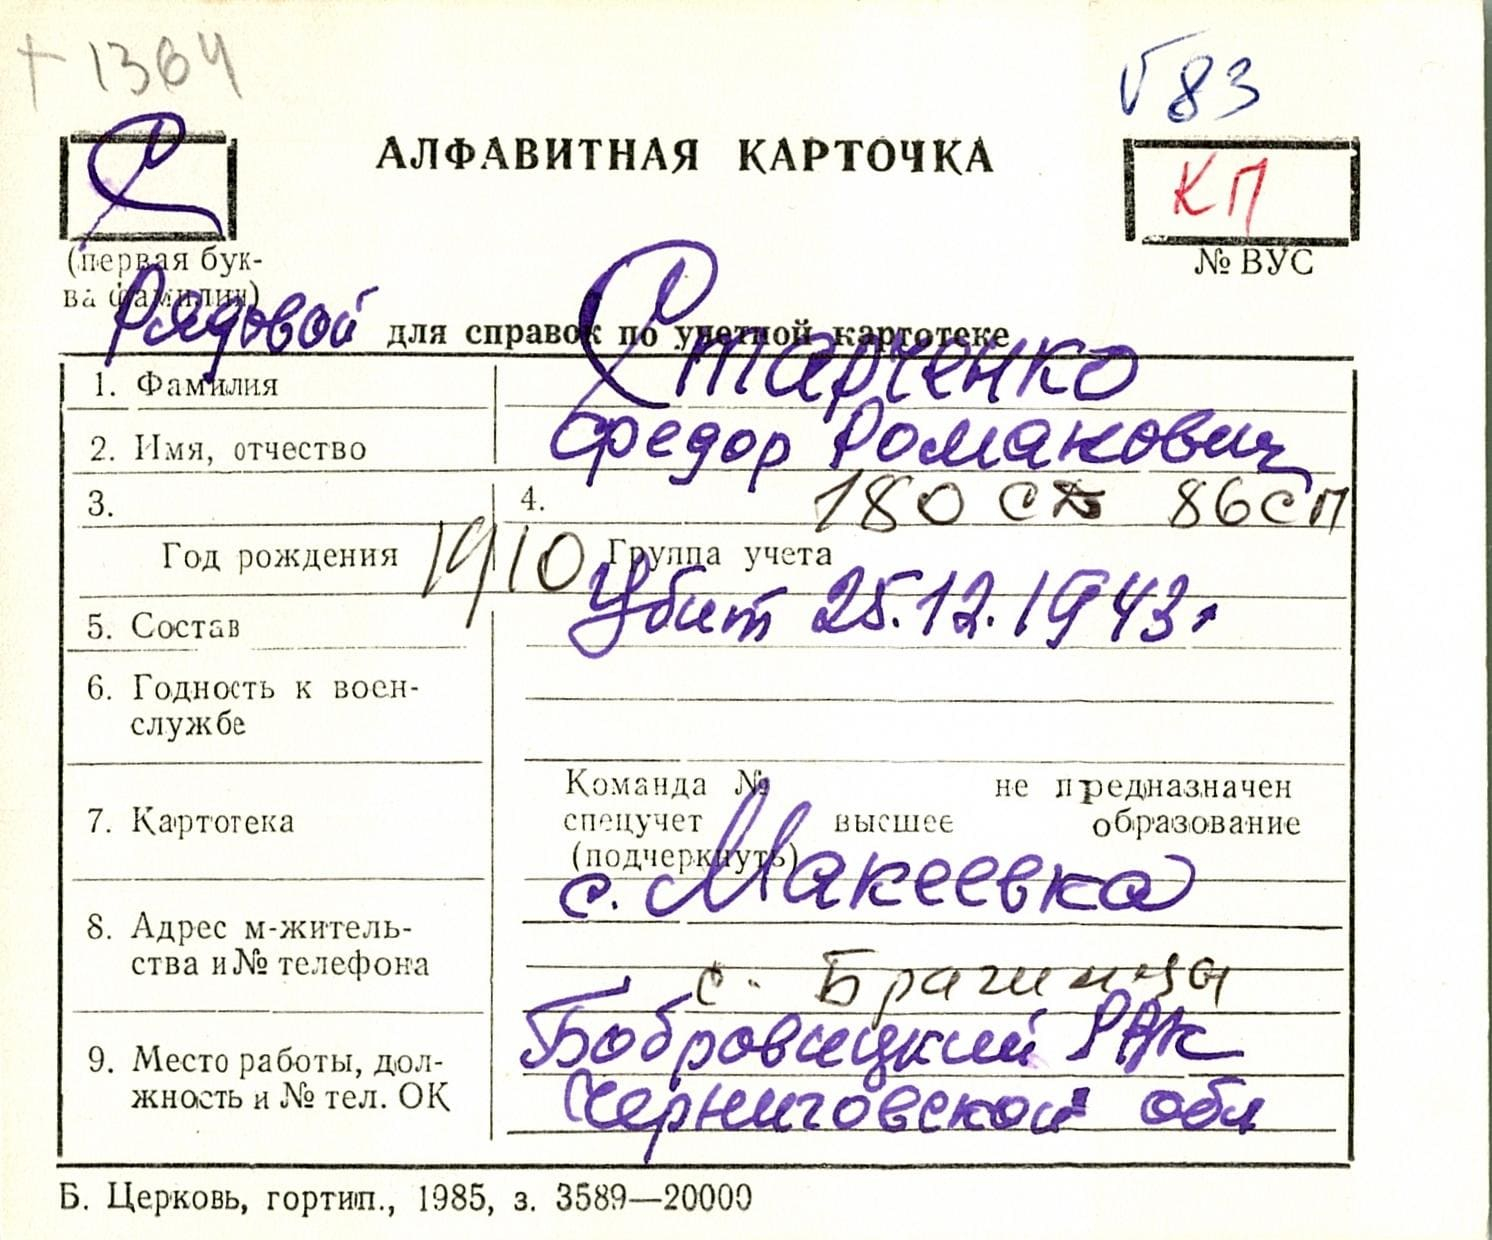 + 1364
√83
С
АЛФАВИТНАЯ КАРТОЧКА
КП
(первая бук-
ва фамилии)
№ ВУС
Рядовой
для справок по учетной картотеке
1. Фамилия Старченко
2. Имя, отчество Федор Романович
3. 4. 180 сд 86 сп
Год рождения 1910 Группа учета
Убит 25.12.1943г
5. Состав
6. Годность к воен-
службе
Команда № не предназначен
7. Картотека спецучет высшее образование
(подчеркнуть)
с. Макеевка
8. Адрес м-житель-
ства и № телефона
с. Брагинцы
Бобровицкий РВК
9. Место работы, дол-
жность и № тел. ОК
Черниговской обл
Б. Церковь, гортип., 1985, з. 3589—20000